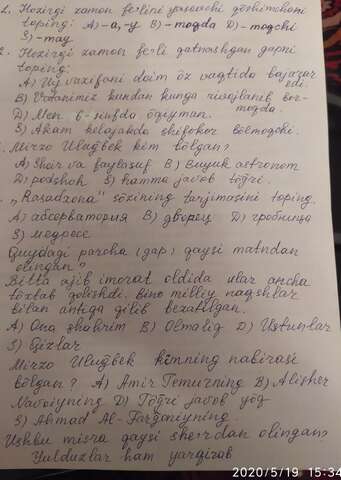 1. Hozirgi zamon fe'lini yasovchi qo'shimchani
toping: A) -a, -y B) -moqda D) -moqchi
S) -may
2. Hozirgi zamon fe'li qatnashgan gapni
toping:
A) Uy vazifani doim öz vaqtida bajarar
edi.
B) Vatanimiz kundan kunga rivojlanib bor-
moqda.
D) Men 6-sinfda öqiyman.
S) Akam kelajakda shifokor bölmoqchi.
Mirzo Ulug'bek kim bölgan?
A) Shoir va faylasuf B) Buyuk astronom
D) podshoh S) hamma javob töğri.
"Rasadxona" sözining tarjimasini toping.
A) абсерватория B) дворец D) гробница
S) медресе
Quyidagi parcha (gap) qaysi matndan
olingan?
Bitta ajib imorat oldida ular ancha
töxtab qolishdi. Bino milliy naqshlar
bilan antiqa qilib bezatilgan.
A) Ona shahrim B) Olmaliq D) Ustunlar
S) Egizlar
Mirzo Ulug'bek kimning nabirasi
bölgan? A) Amir Temurning B) Alisher
Navoiyning D) Töğri javob yöq
S) Ahmad Al-Farg'oniyning
Ushbu misra qaysi she'rdan olingan?
Yulduzlar ham yarqirab
2020/5/19 15:34